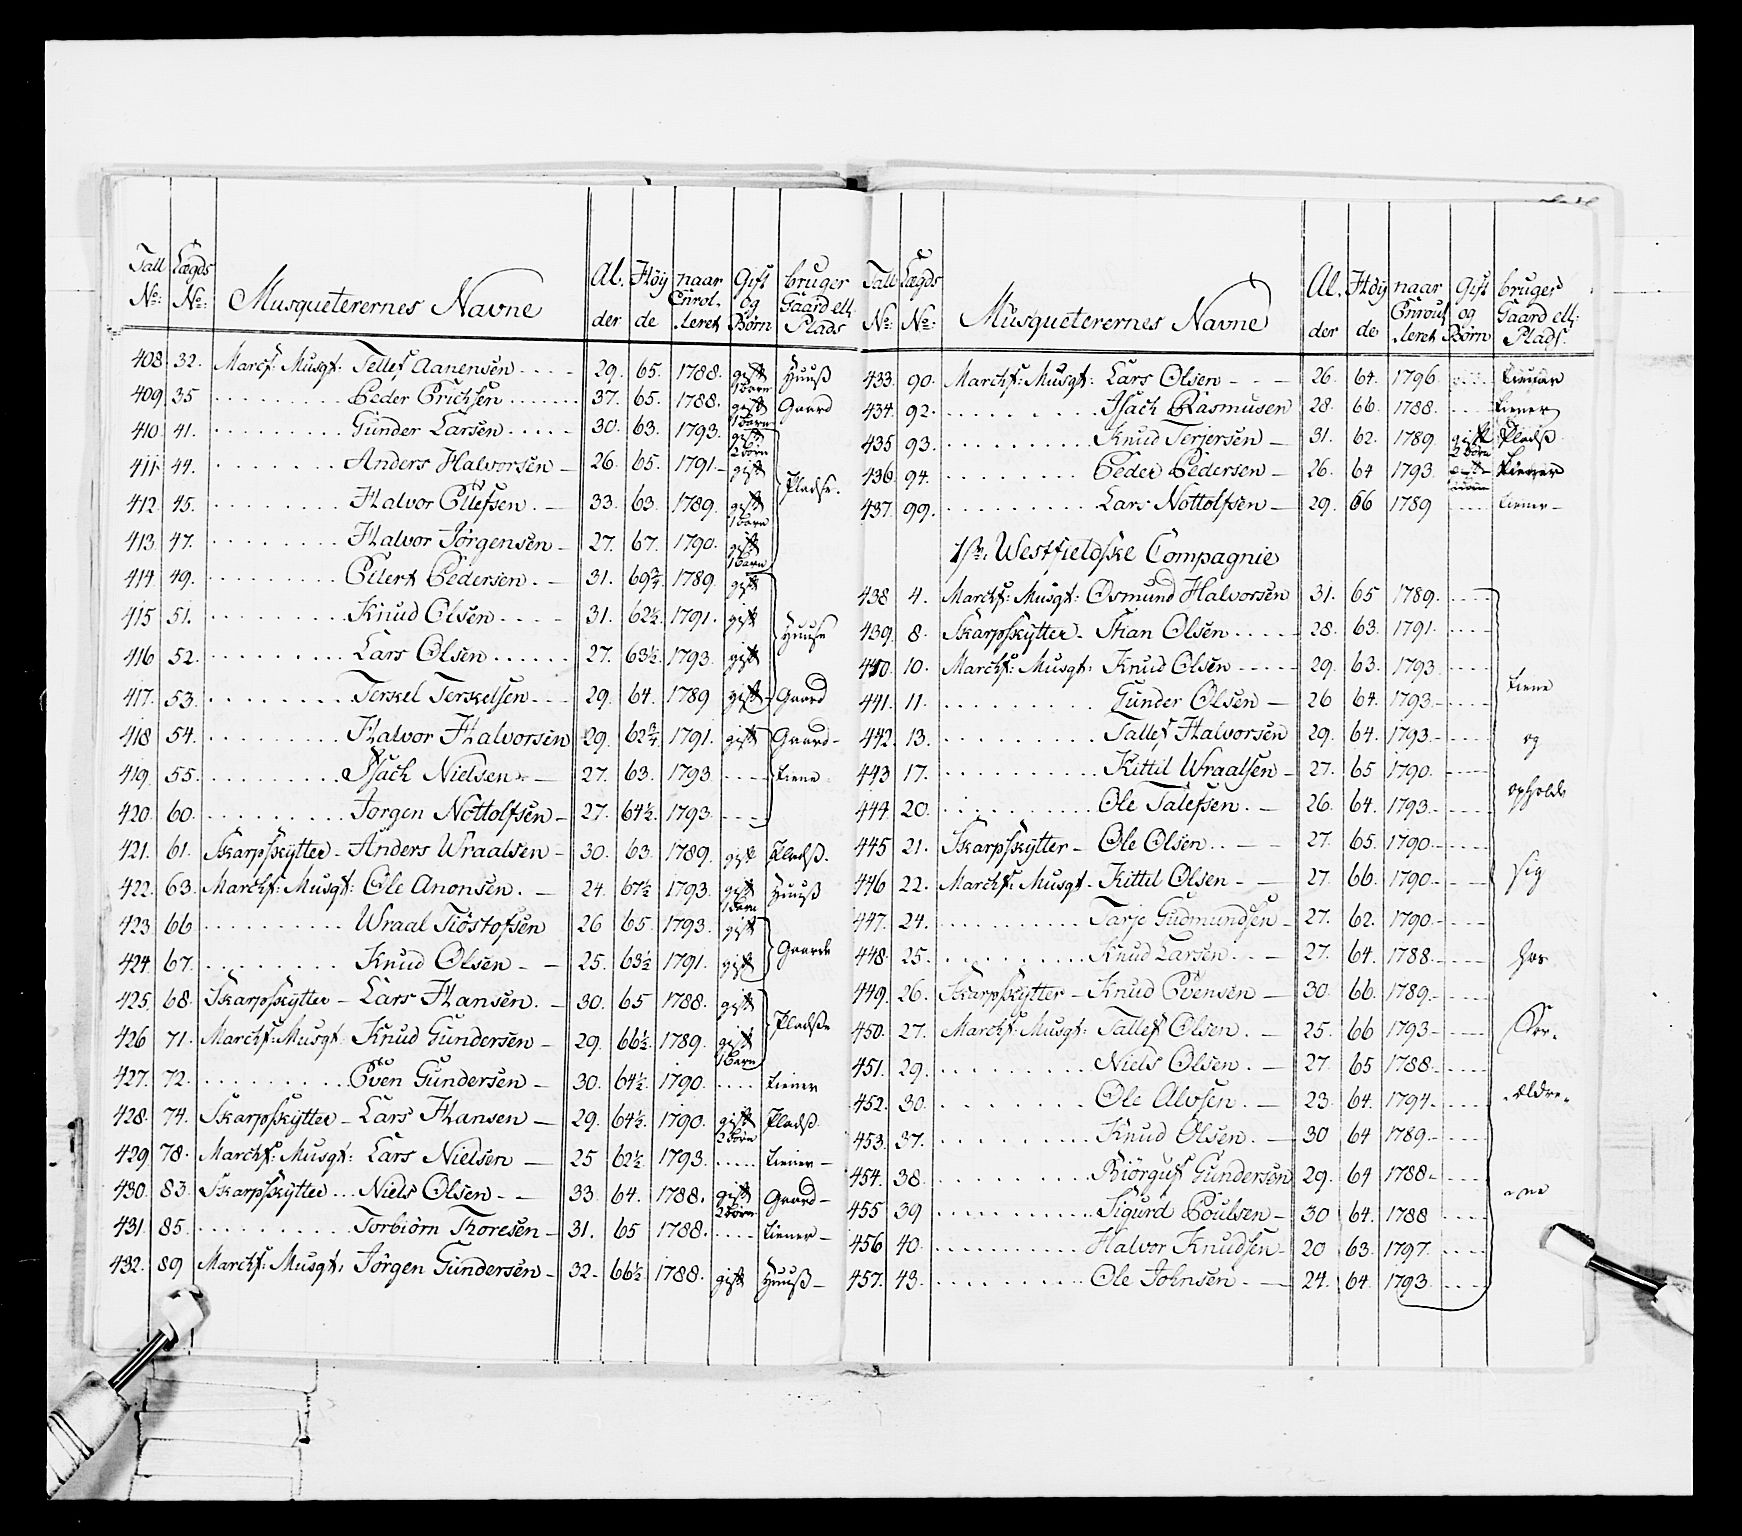 Tall No: Lægds No: Musqueterernes Navne Al. der Høy de naar Enrol. leret Gift og Børn bruger Gaard ell: Plads
408. 32. March: Musqt: Tellef Aanensen 29. 65. 1788. gift 1 Barn Huuß
409. 35 Peder Erichsen 37. 65. 1788. gift 1 Barn Gaard
410. 41. Gunder Larsen 30. 63. 1793. gift 2 Børn
411. 44. Anders Halvorsen 26. 65. 1791. gift Pladse.
412. 45. Halvor Ellefsen 33. 63. 1789. gift 1 Barn
413. 47. Halvor Jørgensen 27. 67. 1790. gift 1 Barn
414. 49. Eilert Pedersen 31. 69¾. 1789. gift
415 51. Knud Olsen 31. 62½. 1791. gift Huuse
416 52. Lars Olsen 27. 63½. 1793. gift
417. 53. Terkel Terkelsen 29. 64. 1789 gift Gaard
418 54. Halvor Halvorsen 29. 62¾. 1791. gift Gaard
419. 55. Isach Nielsen 27. 63. 1793 tiene
420. 60. Jørgen Nottolfsen 27. 64½. 1793.
421. 61. Skarpskytter Anders Wraalsen 30. 63. 1789. gift Pladß.
422. 63. March: Musqt: Ole Anonsen 24. 67½. 1793. gift 1 Barn Huuß
423 66 Wraal Tiøstofsen 26 65. 1793. gift
424. 67. Knud Olsen 25. 63½ 1791. gift Gaarde
425. 68. Skarpskytter Lars Hansen 30. 65 1788. gift
426 71. March: Musqt Knud Gundersen 29. 66½. 1789. gift 1 Barn Pladße
427. 72. Even Gundersen 30. 64½. 1790. tiener
428. 74. Skarpskytter Lars Hansen 29. 64½. 1790. gift 2 Børn Pladß
429 78. March: Musqt: Lars Nielsen 25 62½. 1793. tiener
430. 83. Skarpskytter Niels Olsen 33. 64. 1788. gift 2 Børn Gaard
431. 85. Torbiørn Thoresen 31. 65 1788. tiener
432. 89 March: Musqt: Jørgen Gundersen 32. 66½. 1788. gift Huuß
Tall No: Lægds No: Musqueterernes Navne Al. der Høy de naar Enroul leret Gift og Børn bruger Gaard ell: Plads.
433. 90. March: Musqt: Lars Olsen 26. 64. 1796 tiener
434. 92. Isach Rasmusen 28. 66. 1788. tiener
435 93. Knud Terjersen 31. 62. 1789 gift 2 Børn Pladß
436. 94. Peder Pedersen 26. 64 1793. tiener
437. 99. Lars Nottolfsen 29. 66 1789 tiener
1ste Westfieldske Compagnie
438 4. March: Musqt: Osmund Halvorsen 31. 65 1789.
439. 8. Skarpskytter Stian Olsen 28. 63. 1791.
440 10. March: Musqt: Knud Olsen 29. 63. 1793
441. 11. Gunder Olsen 26 64. 1793. tiene
442. 13. Tallef Halvorsen 29. 64. 1793. og
443 17. Kittil Wraalsen 27. 65 1790.
444. 20. Ole Talefsen 26. 64. 1793. opholde
445 21. Skarpskytter Ole Olsen 27. 65. 1790.
446 22. March: Musqt Kittil Olsen 27. 66. 1790. sig
447. 24. Tarje Gudmundsen 27. 62. 1790.
448. 25. Knud Larsen 27. 64. 1788. hos
449. 26. Skarpskytter Knud Evensen 30. 66. 1789.
450. 27. March: Musqt: Tallef Olsen 25. 66 1793 For-
451. 29. Niels Olsen 27. 65 1788.
452. 30. Ole Alvsen 23. 64. 1794. ældre-
453. 37. Knud Olsen 30 64 1789.
454. 38. Biørguf Gundersen 29. 64 1788.
455 39 Sigurd Poulsen 30 64. 1788 ne
456 40. Halvor Knudsen 20 63. 1797.
457. 43. Ole Johnsen 24. 64. 1793.